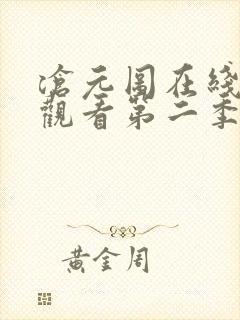 滄元圖在綫
觀看第二季
黃金周